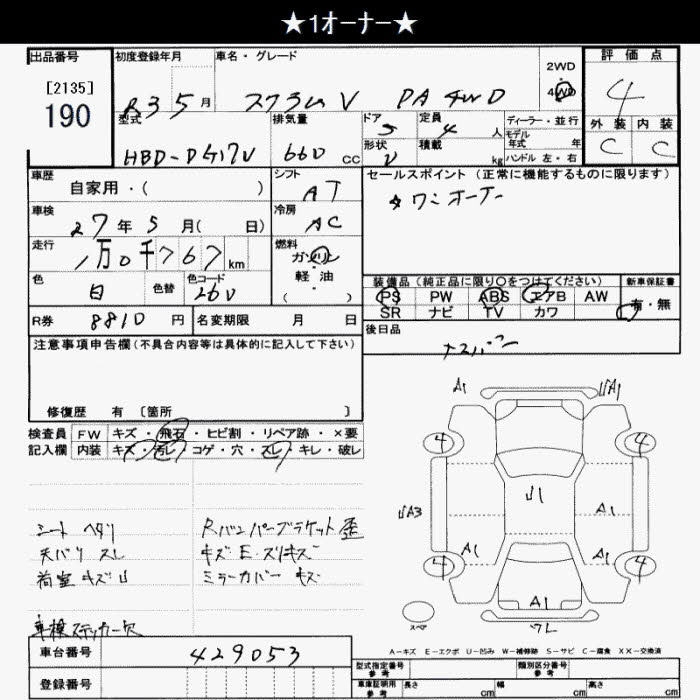 ★1オーナー★
出品番号 初度登録年月 車名・グレード 評価点
[2135]
190
R3 5月 スクラム V PA 4WD
2WD
4WD
4
型式 排気量 ドア 定員 ディーラー・並行 外装 内装
HBD-DG17V 660 CC 5 4 人
モデル年式 年
C C
形状 V 積載 kg ハンドル 左・右
車歴 自家用・( )
シフト AT
セールスポイント (正常に機能するものに限ります)
☆ワンオーナー
車検 27年 5月( 日)
冷房 AC
走行 1万0千767 km
燃料 ガソリン
軽油
( )
色 白 色替 色コード 26U
装備品 (純正品に限り〇をつけてください) 新車保証書
PS PW ABS エアB AW
SR ナビ TV カワ
有・無
R券 8810 円 名変期限 月 日
後日品
注意事項申告欄(不具合内容等は具体的に記入して下さい)
修復歴 有 [箇所 ]
検査員 FW キズ・飛石・ヒビ割・リペア跡・×要
記入欄 内装 キズ・汚レ・コゲ・穴・スレ・キレ・破レ
シート ヘタリ
天バリ スレ
荷室 キズ U
Rバンパーブラケット歪
キズ E・スリキズ
ミラーカバー キズ
車検ステッカー欠
A1
UA1
4
4
U1
UA3
A1
A1
A1
4
4
A1
スペア
ワレ
A-キズ E-エクボ U-凹み W-補修跡 S-サビ C-腐食 XX-交換済
車台番号 429053
登録番号
型式指定番号 参考 類別区分番号 参考
車庫証明用 参考 長さ cm 幅 cm 高さ cm